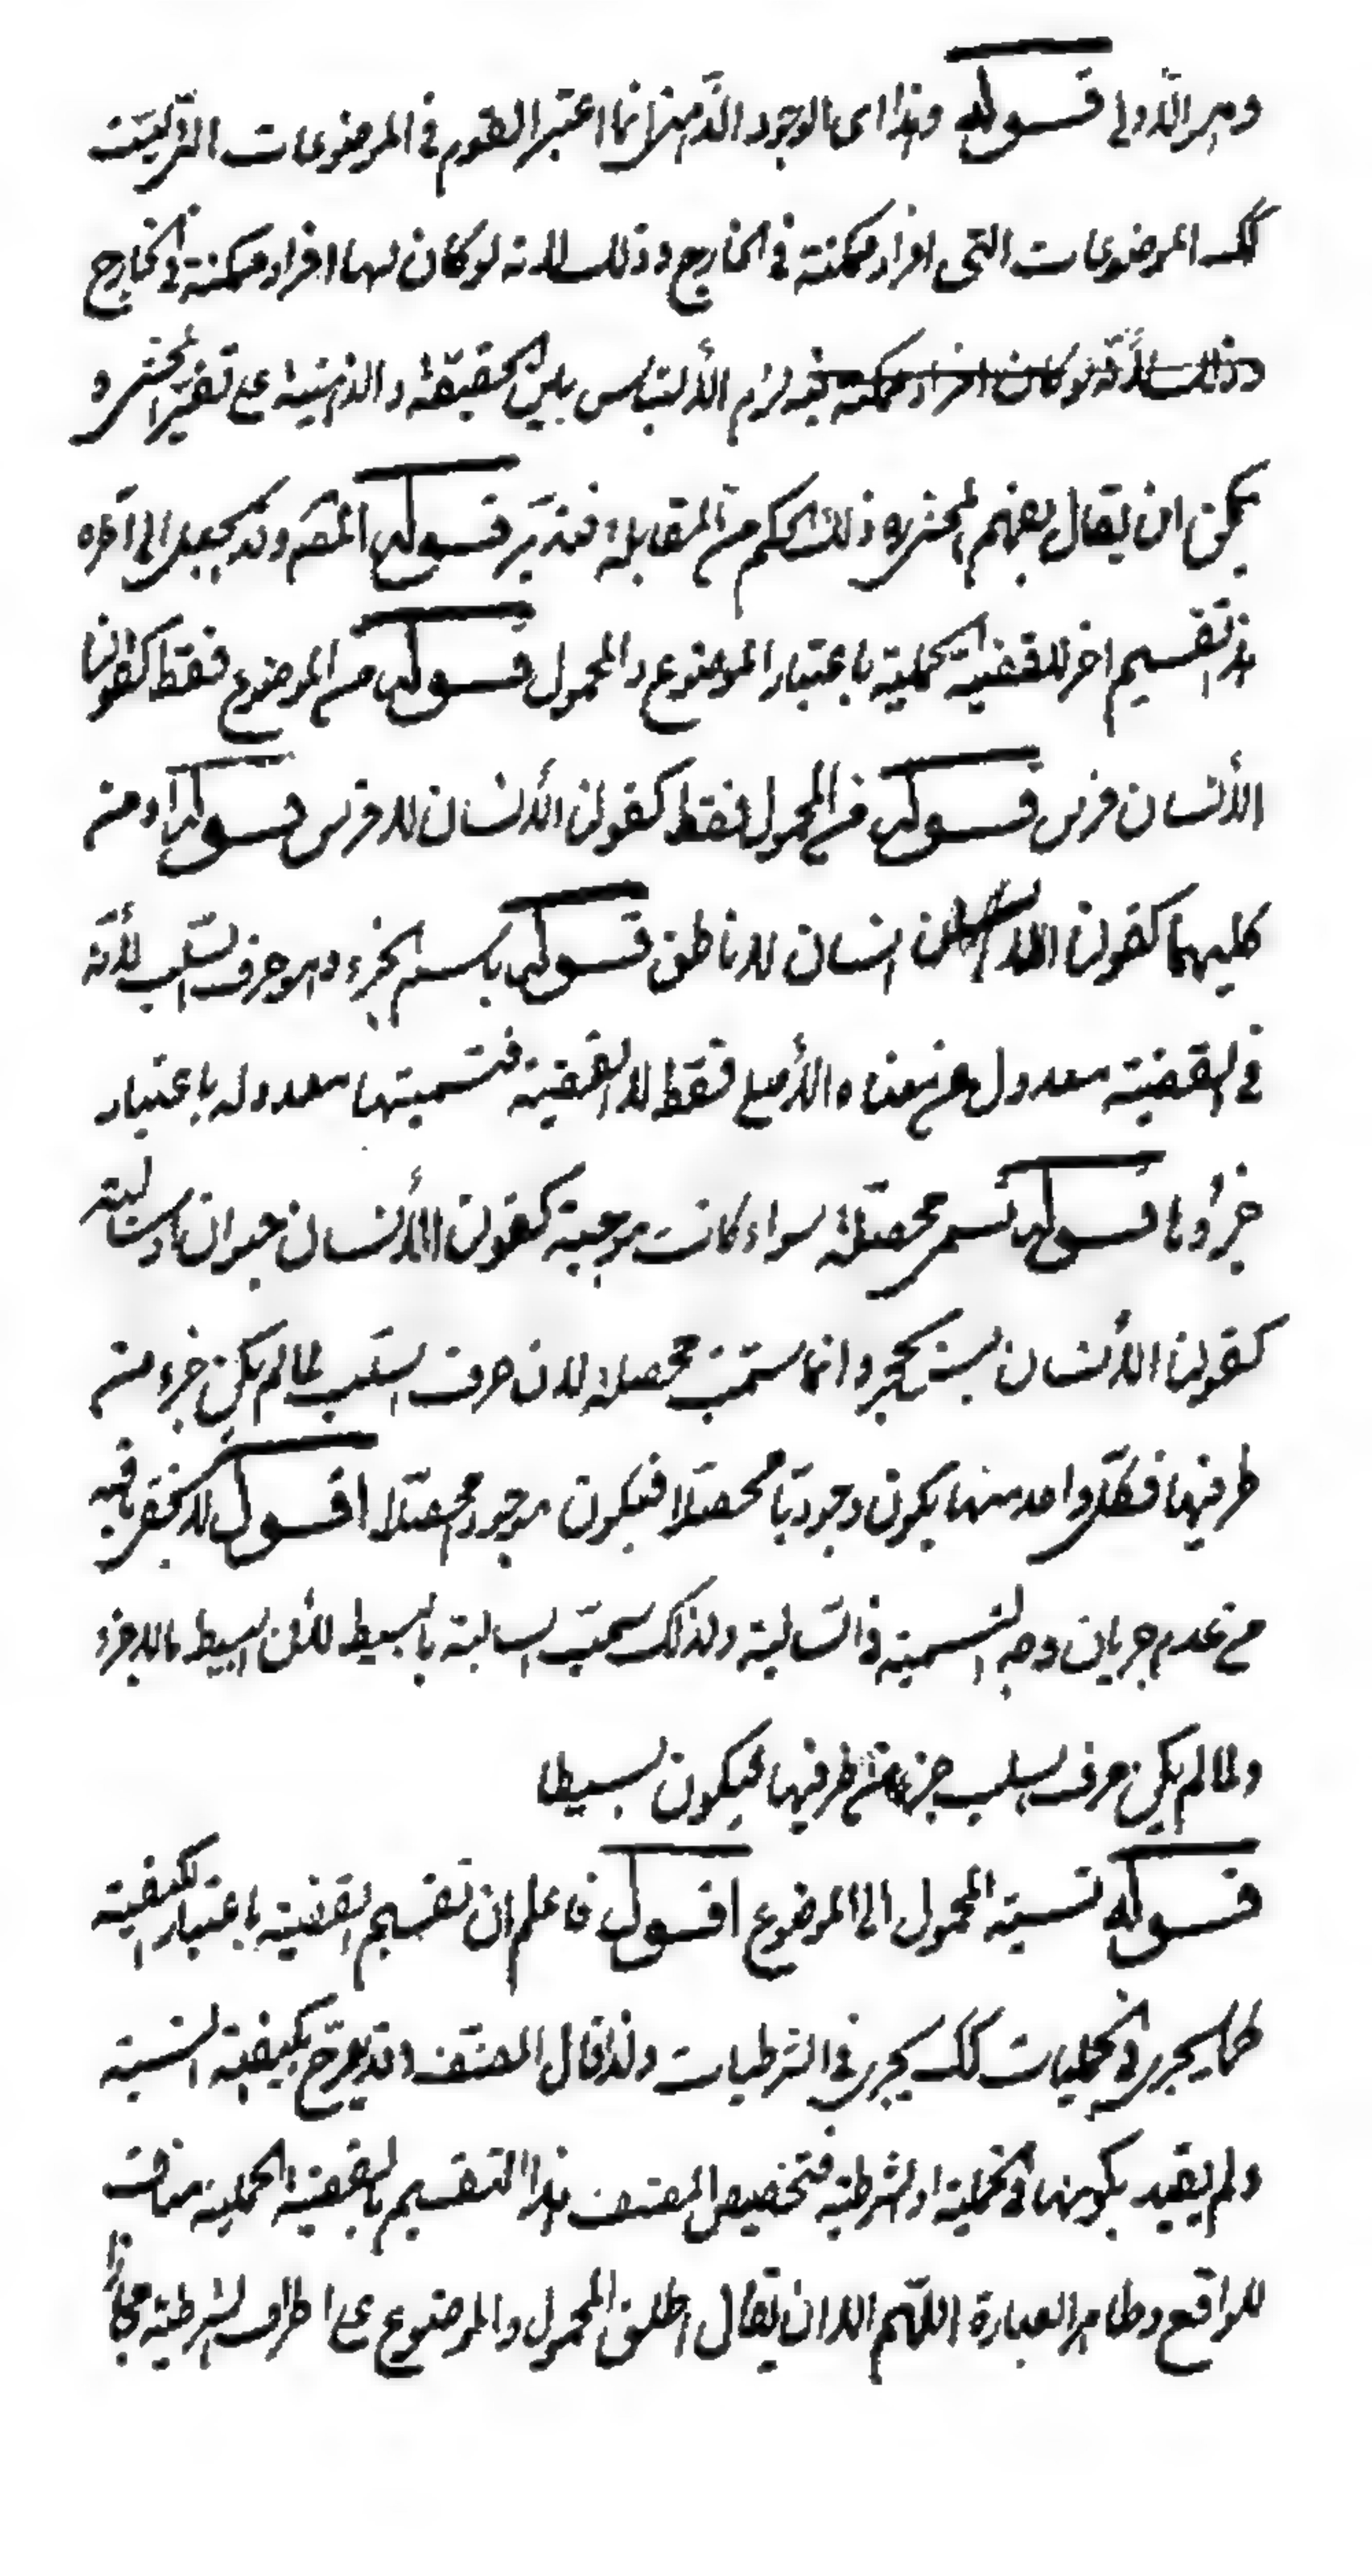 وهو الأولى قوله وهذا اى بالوجود الذهنى انما اعتبر القوم فى الموضوعات التى ليست
لك الموضوعات التى افراد ممكنة فى الخارج وذلك لانه لو كان لها افراد ممكنة فى الخارج
وذلك لأنه لو كان افراد ممكنة فيه لزم الألتباس بين الحقيقة والذهنية على تفسير المحشى ره
يمكن ان يقال يفهم المحشى ره ذلك الحكم من المقابلة فتدبر قوله المصّ وقد يجعل الى آخره
هذا تقسيم اخر للقضية الحملية باعتبار الموضوع والمحمول قوله من الموضوع فقط كقولنا
الأنسان فرس قوله من المحمول فقط كقولنا الأنسان لا فرس قوله او من
كليهما كقولنا انسان لا ناطق قوله باسم الجزء وهو حرف السلب لأنّه
فى القضية معدول عن معناه الأصلى فقط لا القضية فتسميتها معدوله باعتبار
جزؤها قوله تسمى محصّلة سواء كانت موجبة كقولنا الأنسان حيوان او سالبة
كقولنا الأنسان ليست بحجر وانما سمّيت محصلة لان حرف السلب لما لم يكن جزء من
طرفيها فكلّ واحد منهما يكون وجوديّا محصّلا فيكون موجود محصّلا اقول لا يخفى ما فيه
من عدم جريان وجه التسمية فى السّالبة ولذلك سمّيت السالبة بالبسيط لأن البسيط ما لا جزء
ولما لم يكن حرف السلب جزء من طرفيها فيكون بسيطا
قوله نسبة المحمول الى الموضوع اقول فاعلم ان تقسيم القضية باعتبار الكيفية
كما يجرى فى الحمليات لك يجرى فى الشرطيات ولذا قال المصنّف وقد يصرّح بكيفية النسبة
ولم يقيد بكونها فى الحملية او الشرطية فتخصيص المصنف هذا التقسيم بالقضية الحملية مناف
للواقع وظاهر العبارة اللّهم الا ان يقال اطلق المحمول والموضوع على اطراف الشرطية مجازاً